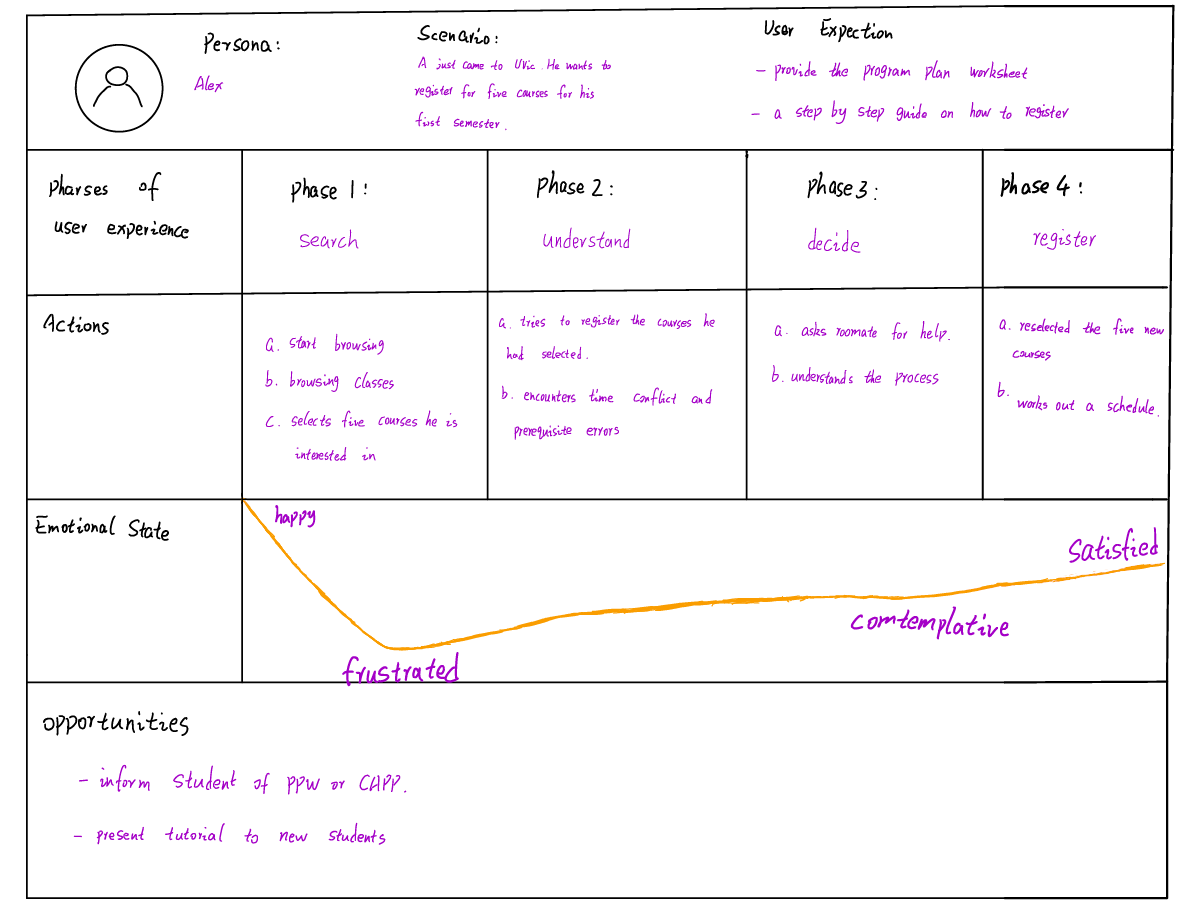 Persona:
Alex
Scenario:
A just came to UVic. He wants to
register for five courses for his
first semester.
User Expection
- provide the program plan worksheet
- a step by step guide on how to register
pharses of
user experience
phase 1:
search
phase 2:
understand
phase 3:
decide
phase 4:
register
Actions
a. start browsing
b. browsing classes
c. selects five courses he is
interested in
a. tries to register the courses he
had selected.
b. encounters time conflict and
prerequisite errors
a. asks roomate for help.
b. understands the process
a. reselected the five new
courses
b. works out a schedule.
Emotional State
happy
frustrated
comtemplative
satisfied
opportunities
- inform student of PPW or CAPP.
- present tutorial to new students